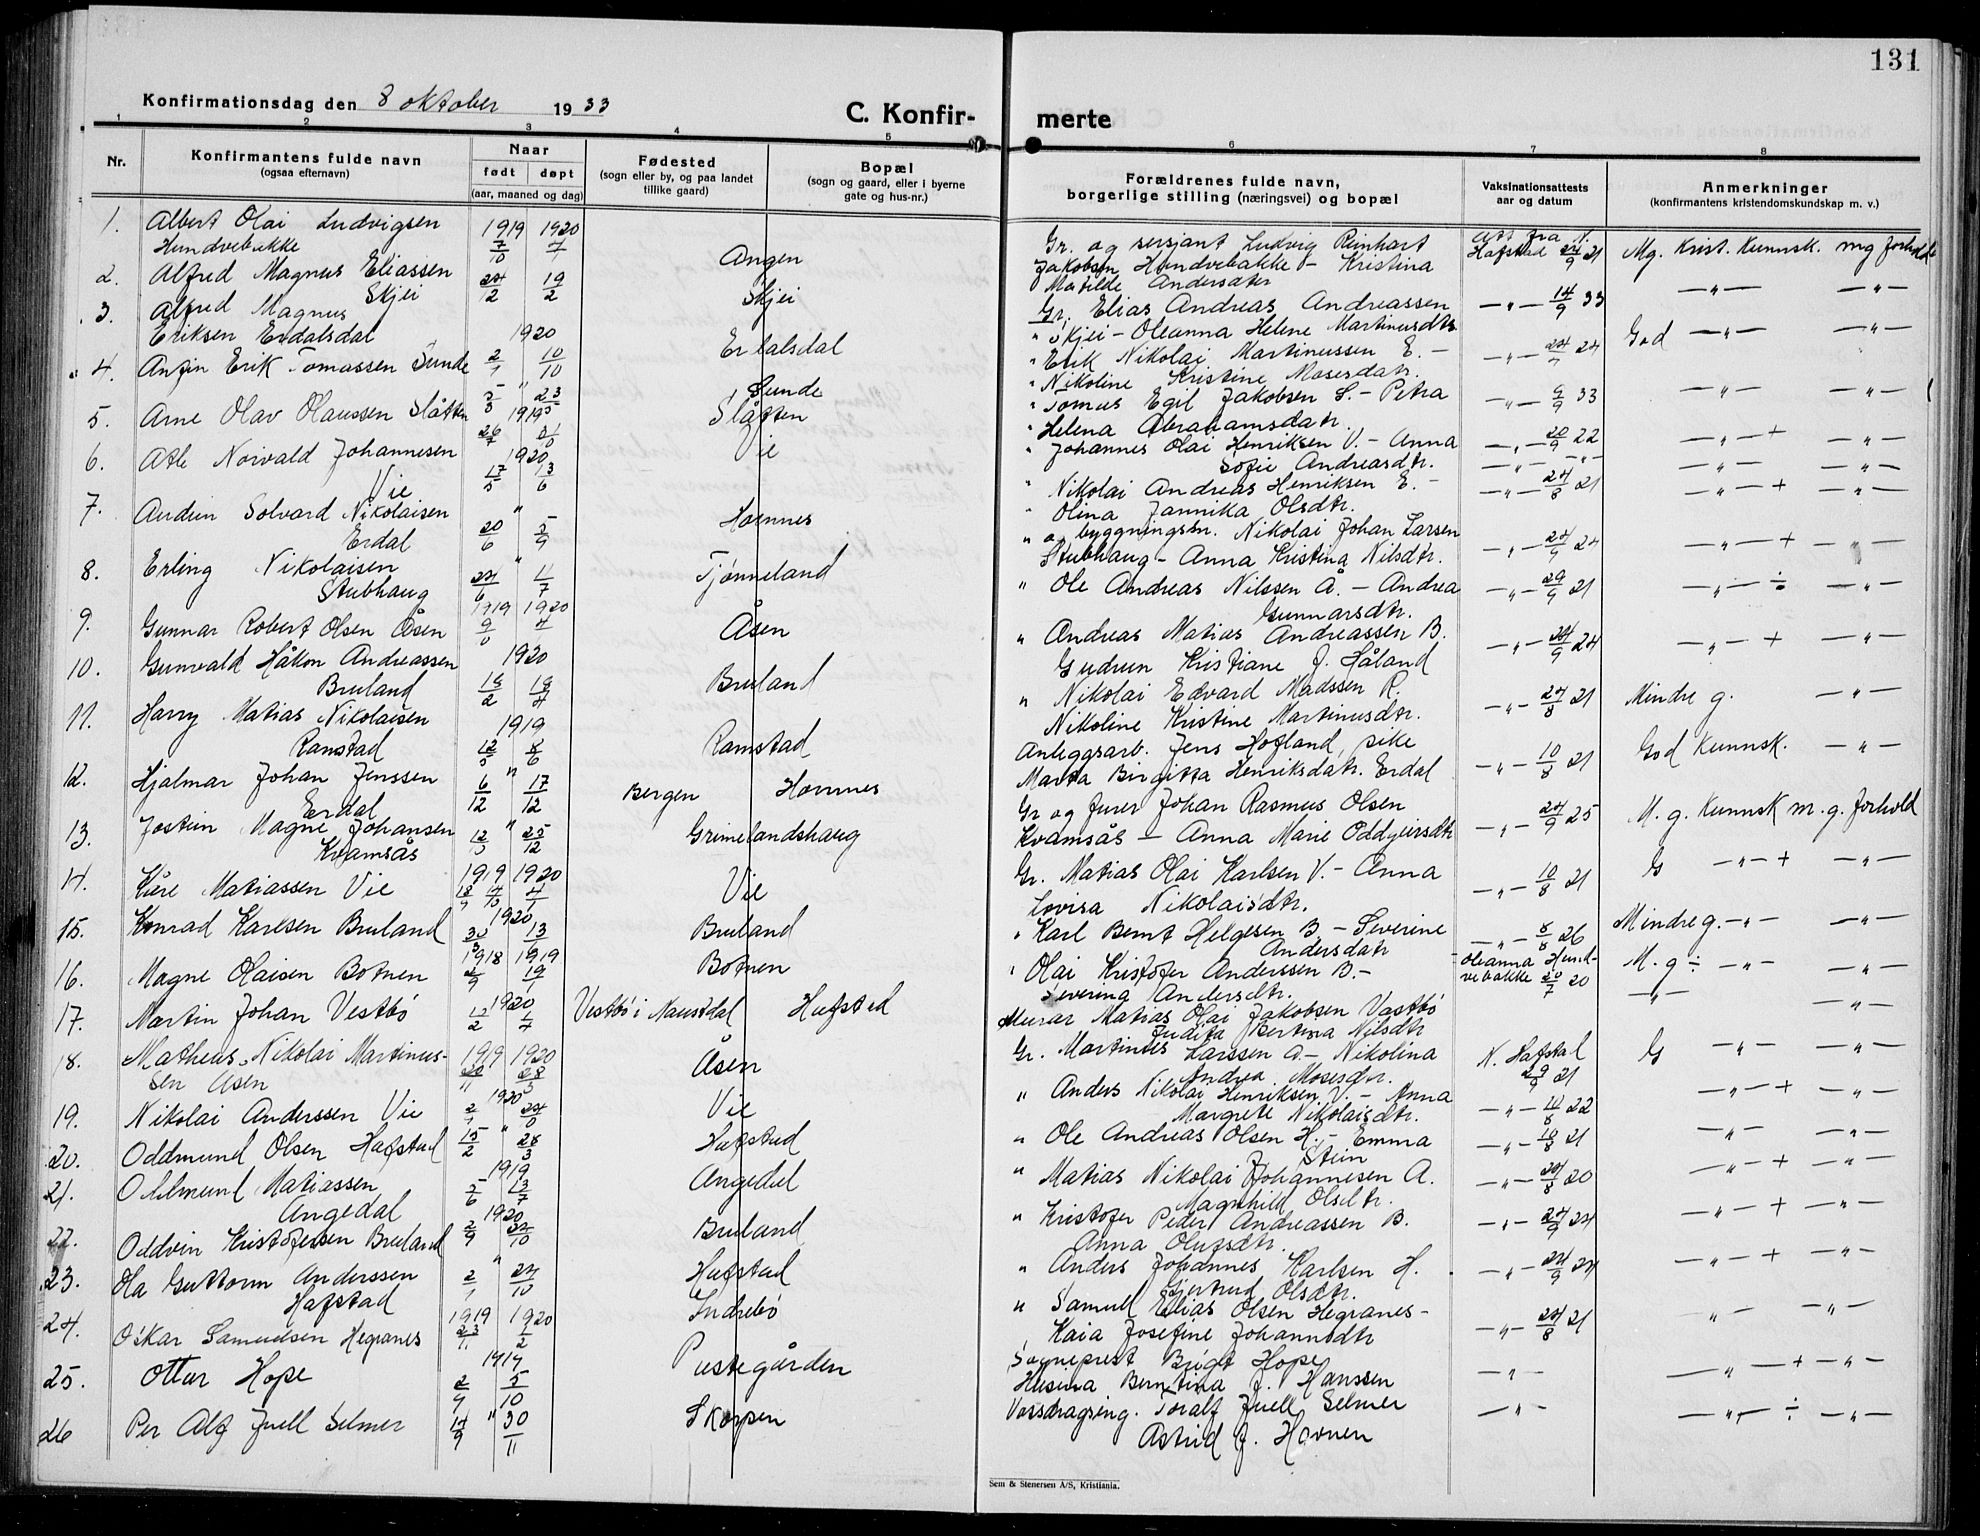 131
Konfirmationsdag den 8 oktober 1933
C. Konfir-
merte
1 2 3 4 5 6 7 8
Nr.
Konfirmantens fulde navn
(ogsaa efternavn)
Naar
født døpt
(aar, maaned og dag)
Fødested
(sogn eller by, og paa landet
tillike gaard)
Bopæl
(sogn og gaard, eller i byerne
gate og hus-nr.)
Forældrenes fulde navn,
borgerlige stilling (næringsvei) og bopæl
Vaksinationsattests
aar og datum
Anmerkninger
(konfirmantens kristendomskundskap m. v.)
1. Albert Olai Ludvigsen 1919 1920
Hundvebakke 7/10 Angen
2. Alfred Magnus Eliassen 24/2 19/2
Skjei Skjei
3. Alfred Magnus
Eriksen Erdalsdal 1920 Erdalsdal
4. Anfin Erik Tomassen Sunde 2/1 10/10
Sunde
5. Arne Olav Olaussen Slåtten 1919 Slåtten
6. Atle Norvald Johannesen 1920 Vie
Vie 17/5 13/6
7. Audun Solvard Nikolaisen " Hornnes
Erdal 20/6 5/9
8. Erling Nikolaisen " Tjønneland
Stubhaug 24/6 11/7
1919 1920
9. Gunnar Robert Olsen Åsen Åsen
10. Gunvald Håkon Andreassen 1920
Bruland 18/2 18/4 Bruland
11. Harry Matias Nikolaisen 1919
Ramstad 12/5 8/6 Ramstad
12. Hjalmar Johan Jenssen " Bergen Hornnes
Erdal 6/12 17/12
13. Jostein Magne Johansen " 25/12 Grimelandshaug
Kvamsås
14. Kåre Matiassen Vie 1919 1920 Vie
15. Konrad Karlsen Bruland 1920 Bruland
1918 1919
16. Magne Olaisen Botnen Botnen
17. Martin Johan Vestbø 1920 Vestbø i Naustdal Hafstad
18. Matheus Nikolai Martinus- 1919 1920
sen Åsen Åsen
19. Nikolai Anderssen Vie 1920 Vie
20. Oddmund Olsen Hafstad 15/2 28/3 Hafstad
21. Oddmund Matiassen 1919
Angedal 5/6 13/7 Angedal
22. Oddvin Kristofersen Bruland 1920 Bruland
23. Ola Guttorm Anderssen " Hafstad
Hafstad
24. Oskar Samuelsen Hegranes 1919 1920 Indrebø
25. Ottar Hope 1919 Prestegården
5/10
26 Per Alf Juell Selmer 14/9 " 30/11 Skorpen
Gr. og sersjant Ludvig Reinhart
Jakobsen Hundvebakke - Kristina
Matilde Andersdtr
Gr. Elias Andreas Andreassen
" Skjei - Oleanna Helene Martinusdtr
" Erik Nikolai Martinussen E. -
" Nikoline Kristine Mosesdatr.
" Tomas Egil Jakobsen S. - Petra
" Helena Abrahamsdatr.
" Johannes Olai Henriksen V. - Anna
Sofie Andreasdtr.
" Nikolai Andreas Henriksen E. -
" Olina Jannika Olsdtr.
" og byggningssn. Nikolai Johan Larsen
Stubhaug - Anna Kristina Nilsdtr.
" Ole Andreas Nilssen Å. - Andrea
Gunnarsdtr.
" Andreas Matias Andreassen B.
Gudrun Kristiane J. Håland
" Nikolai Edvard Madssen R.
Nikoline Kristine Martinusdtr.
Anleggsarb. Jens Hofland, pike
Marta Birgitta Henriksdatr. Erdal
Gr og furer Johan Rasmus Olsen
Kvamsås - Anna Marie Oddgeirsdtr
Gr. Matias Olai Karlsen V. - Anna
Lovisa Nikolaisdtr.
" Karl Bernt Helgesen B - Severine
Andersdatr
" Olai Kristofer Anderssen B. -
Severina Andersdtr.
Murar Matias Olai Jakobsen Vestbø
Judita Bertina Nilsdtr
Gr. Martinus Larssen Å. - Nikolina
Andrea Mosesdtr.
" Anders Nikolai Henriksen V. - Anna
Margrete Nikolaisdtr.
" Ole Andreas Olsen H. - Emma
Stein
" Matias Nikolai Johannesen A.
Magnhild Olsdtr.
" Kristofer Peder Andreassen B.
Anna Olufsdtr.
" Anders Johannes Karlsen H.
Gjertrud Olsdtr.
" Samuel Elias Olsen Hegranes -
Kaia Josefine Johannsdtr
Sogneprest Brigt Hope
Husina Berntina J. Hanssen
Vassdragsing. Toralf Juell Selmer
Astrid J. Hovnen
att fra N.
Hafstad 24/9 21 Mg. Krist. Kunnsk. mg forhold
— " — 14/9 33 — " — — " —
— " — 24 God — " — — " —
— " — 9/9 33 — " — — " —
— " — 20/9 22 — " — + — " —
— " — — " — — " — — " —
— " — 24/8 21 — " — + — " —
— " — 24/9 24 — " — + — " —
— " — 29/9 21 — " — ÷ — " —
— " — 24/9 24 — " — + — " —
— " — 24/8 21 Mindre g. — " —
— " — 10/8 21 God Kunnsk. — " —
— " — 24/9 25 M. g. Kunnsk m. g. forhold
— " — 10/8 21 G — " — + — " —
— " — 8/8 26 Mindre g. — " — — " —
Oleanna Hund-
vebakke 20/7 20 M. g ÷ — " — — " —
— " — — " —
N. Hafstad
29/9 21 G — " — — " —
— " — 10/8 22 — " — + — " —
— " — 10/8 21 — " — — " —
— " — 24/8 20 — " — + — " —
— " — 24/9 24 — " — + — " —
— " — 24/9 24 — " — + — " —
— " — 24/8 21 " — — " —
— " — — " — + — " —
— " — — " — ÷ — " —
Sem & Stenersen A/S, Kristiania.